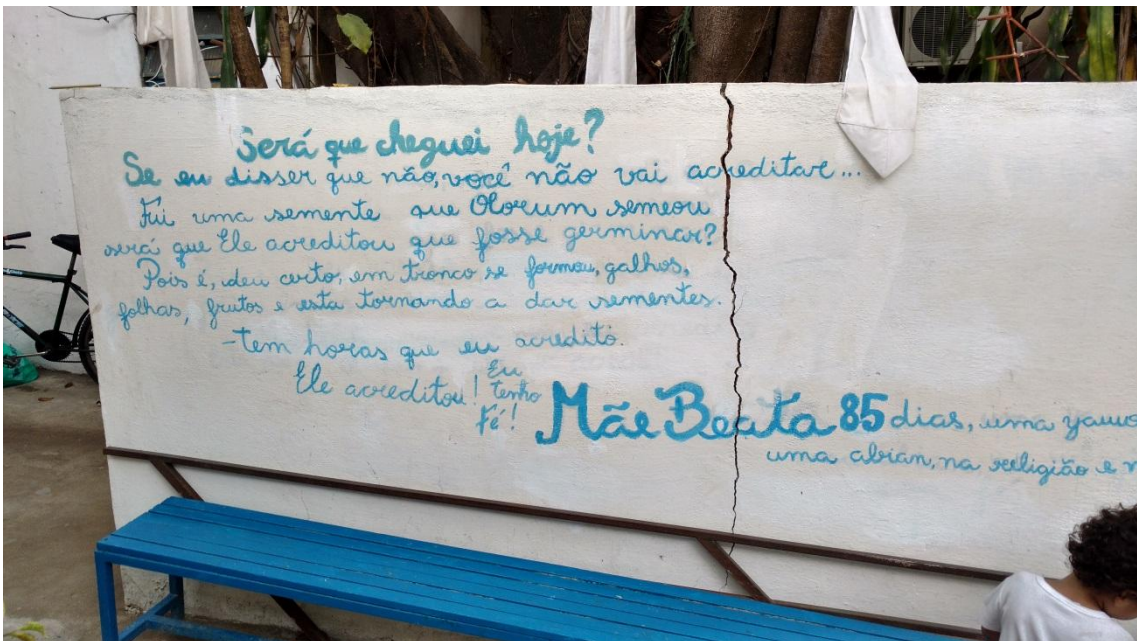 Será que cheguei hoje?
Se eu disser que não, você não vai acreditar...
Fui uma semente que Olorum semeou
será que Ele acreditou que fosse germinar?
Pois é, deu certo, em tronco se formou, galhos,
folhas, frutos e esta tornando a dar sementes.
-tem horas que eu acredito.
Ele acreditou! Eu tenho Fé!
Mãe Beata 85 dias, uma
uma abian, na religião e